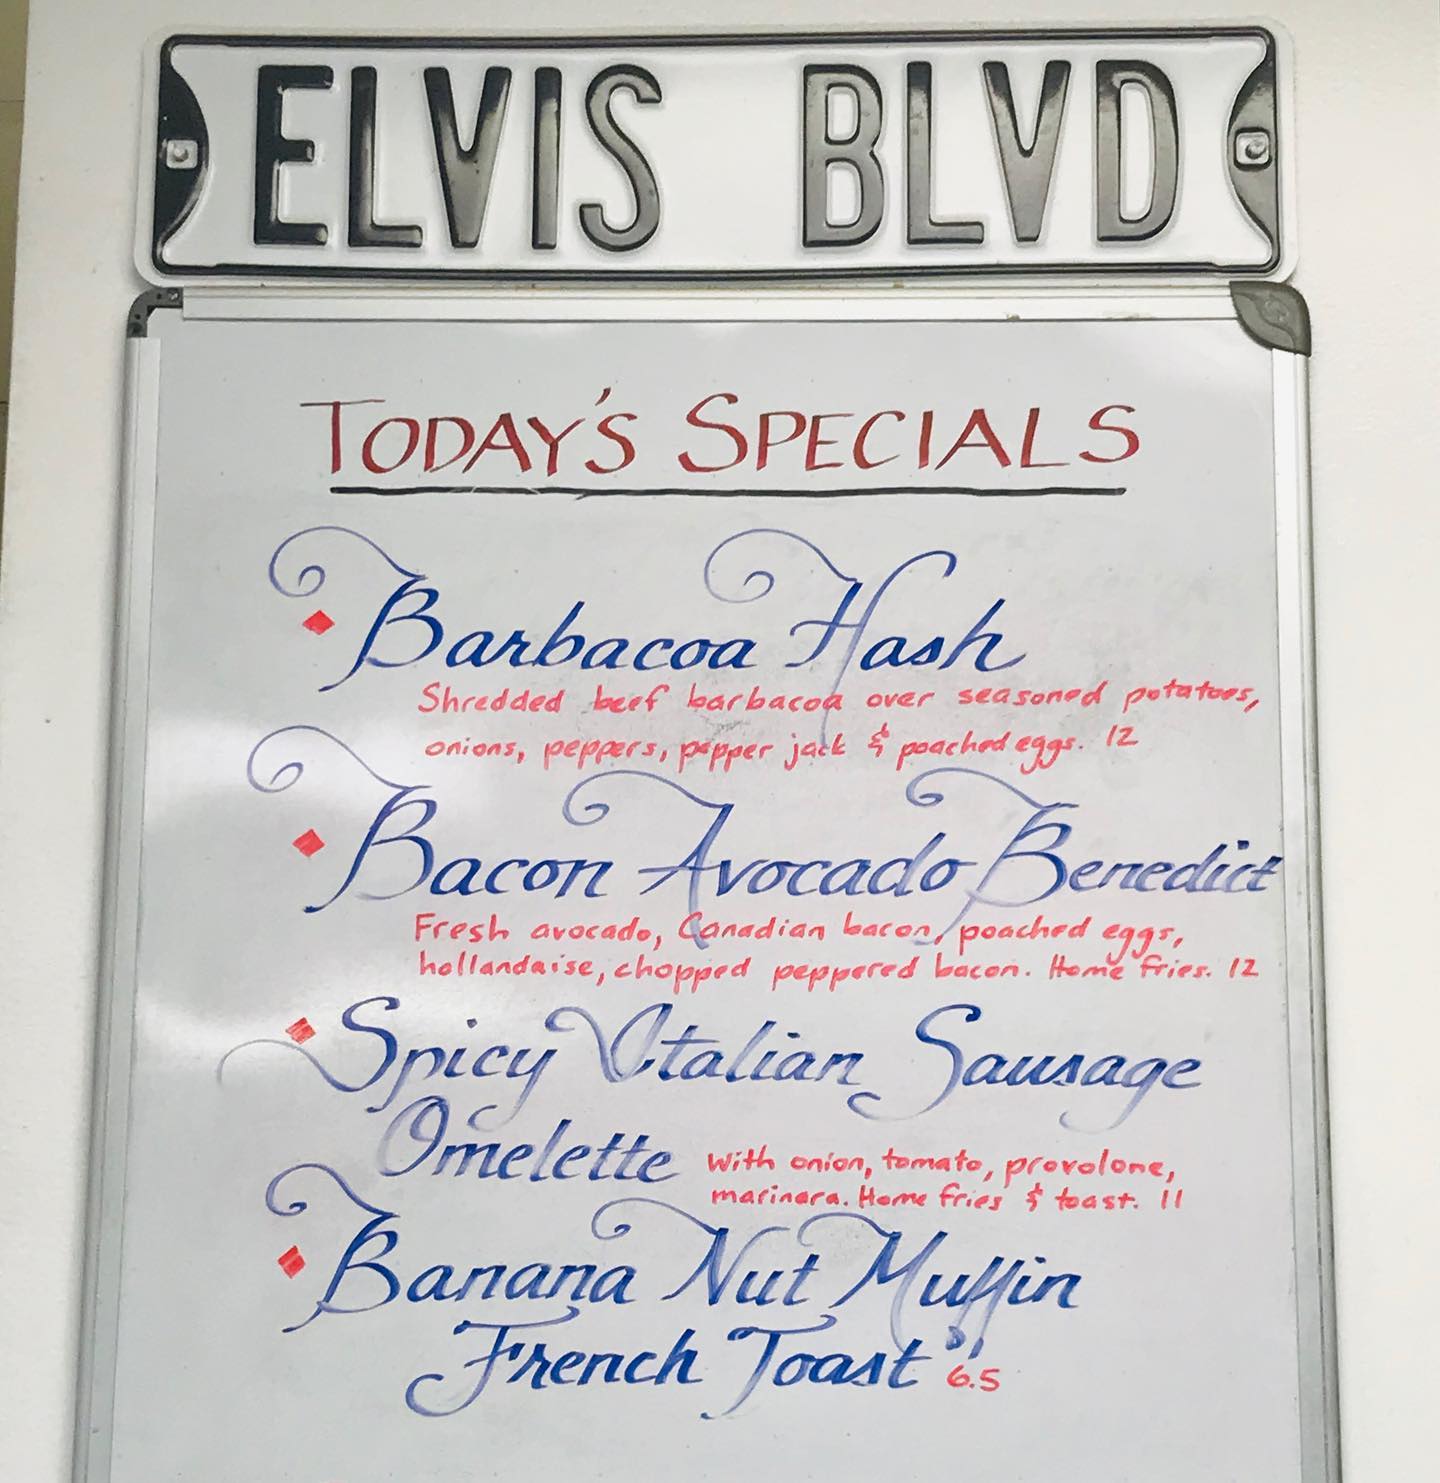 ELVIS BLVD
TODAY'S SPECIALS
Barbacoa Hash
Shredded beef barbacoa over seasoned potatoes,
onions, peppers, pepper jack & poached eggs. 12
Bacon Avocado Benedict
Fresh avocado, Canadian bacon, poached eggs,
hollandaise, chopped peppered bacon. Home fries. 12
Spicy Italian Sausage
Omelette with onion, tomato, provolone,
marinara. Home fries & toast. 11
Banana Nut Muffin
French Toast 6.5